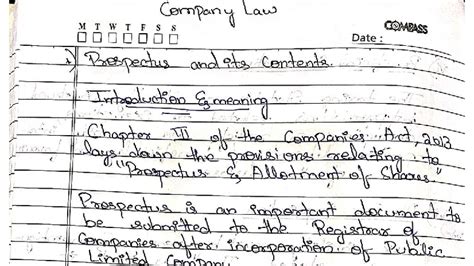 Company Law
M T W T F S S
COMPASS
Date :
i) Prospectus and its Contents.
Introduction & meaning
Chapter III of the Companies Act, 2013
lays down the provisions relating to
"Prospectus & Allotment of Shares"
Prospectus is an important document to
be submitted to the Registrar of
Companies after incorporation of Public
Limited Company